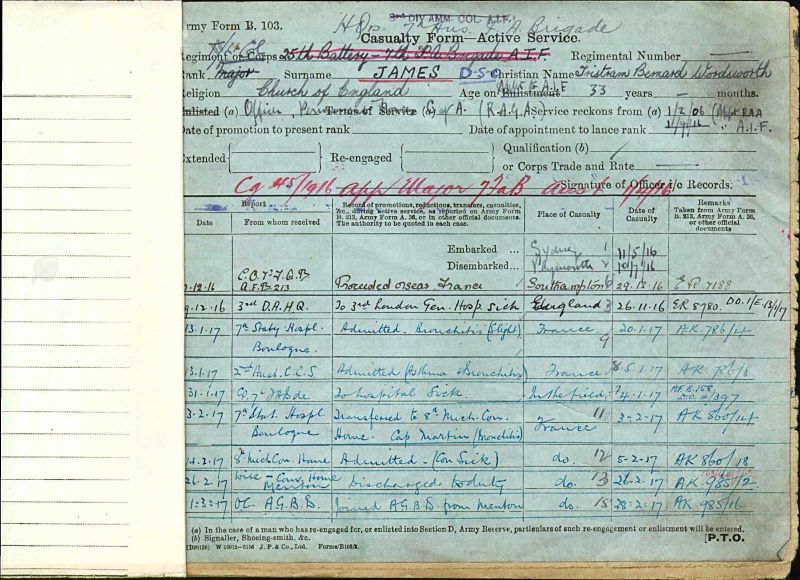 Army Form B. 103.
3RD DIV. AMM. COL. A.I.F.
Hqrs. 7th Aus. F.A. Brigade
Casualty Form—Active Service.
Lt Col
Regiment or Corps 25th Battery - 7th F.A. Brigade A.I.F. Regimental Number —
Rank Major Surname JAMES D.S.O. Christian Name Tristram Bernard Wordsworth
Religion Church of England Age on Enlistment 33 years — months.
Appt A.I.F
Enlisted (a) Officer, Terms of Service (a) (R.A.G.A.) Service reckons from (a) 1/2/06
A.I.F.
Date of promotion to present rank Date of appointment to lance rank
Extended Re-engaged Qualification (b)
or Corps Trade and Rate
Signature of Officer i/c Records.
Report
Date From whom received
Record of promotions, reductions, transfers, casualties, &c., during active service, as reported on Army Form B. 213, Army Form A. 36, or in other official documents. The authority to be quoted in each case.
Place of Casualty
Date of Casualty
Remarks
Taken from Army Form B. 213, Army Form A. 36, or other official documents
Embarked ... Sydney 1 11/5/16
Disembarked ... Plymouth 2 10/7/16
12.16 A.F.B. 213 Proceeded overseas France Southampton 29.12.16 E.R. 7188
9.12.16 3rd D.A.H.Q. To 3rd London Gen. Hosp. Sick England 3 26.11.16 E.R 8780.
13.1.17 7th Staty Hospl. Boulogne Admitted. Bronchitis (Slight) France 9 20.1.17 AK 786/14
13.1.17 2nd Aust. C.C.S Admitted (Asthma & Bronchitis) France 8 5.1.17 AK 786/8
31.1.17 CO. 7 FABde To hospital Sick. In the field 7 4.1.17 AF B.158 D.O. 4/397
3.2.17 7th Stat. Hospl. Boulogne Transferred to 8th Mich. Con. Home. Cap Martin (Bronchitis) 11 France 3.2.17 AK 860/14
14.2.17 8th Mich Con. Home Admitted - (Con Sick) do. 12 5.2.17 AK 860/18
26.2.17 Conv. Home Mentone Discharged to duty do. 13 26.2.17 AK 985/12
1.3.17 OC. A.G.B.D. Joined A.G.B.D. from Menton do. 15 28.2.17 AK 985/16
(a) In the case of a man who has re-engaged for, or enlisted into Section D, Army Reserve, particulars of such re-engagement or enlistment will be entered.
(b) Signaller, Shoeing-smith, &c.
W 15012—5156 J. P. & Co., Ltd. Forms/B103/2.
[P.T.O.